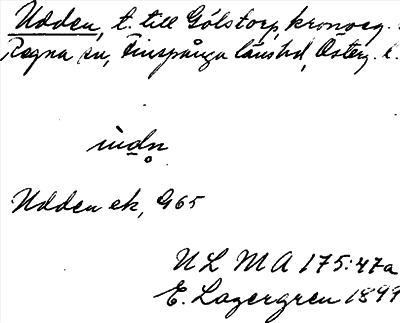 Udden, t. till Gölstorp, kronoeg.
Regna sn, Finspånga länshd, Österg. l.
ùdn̥
Udden ek, G65
ULMA 175:47a
E. Lagergren 1899